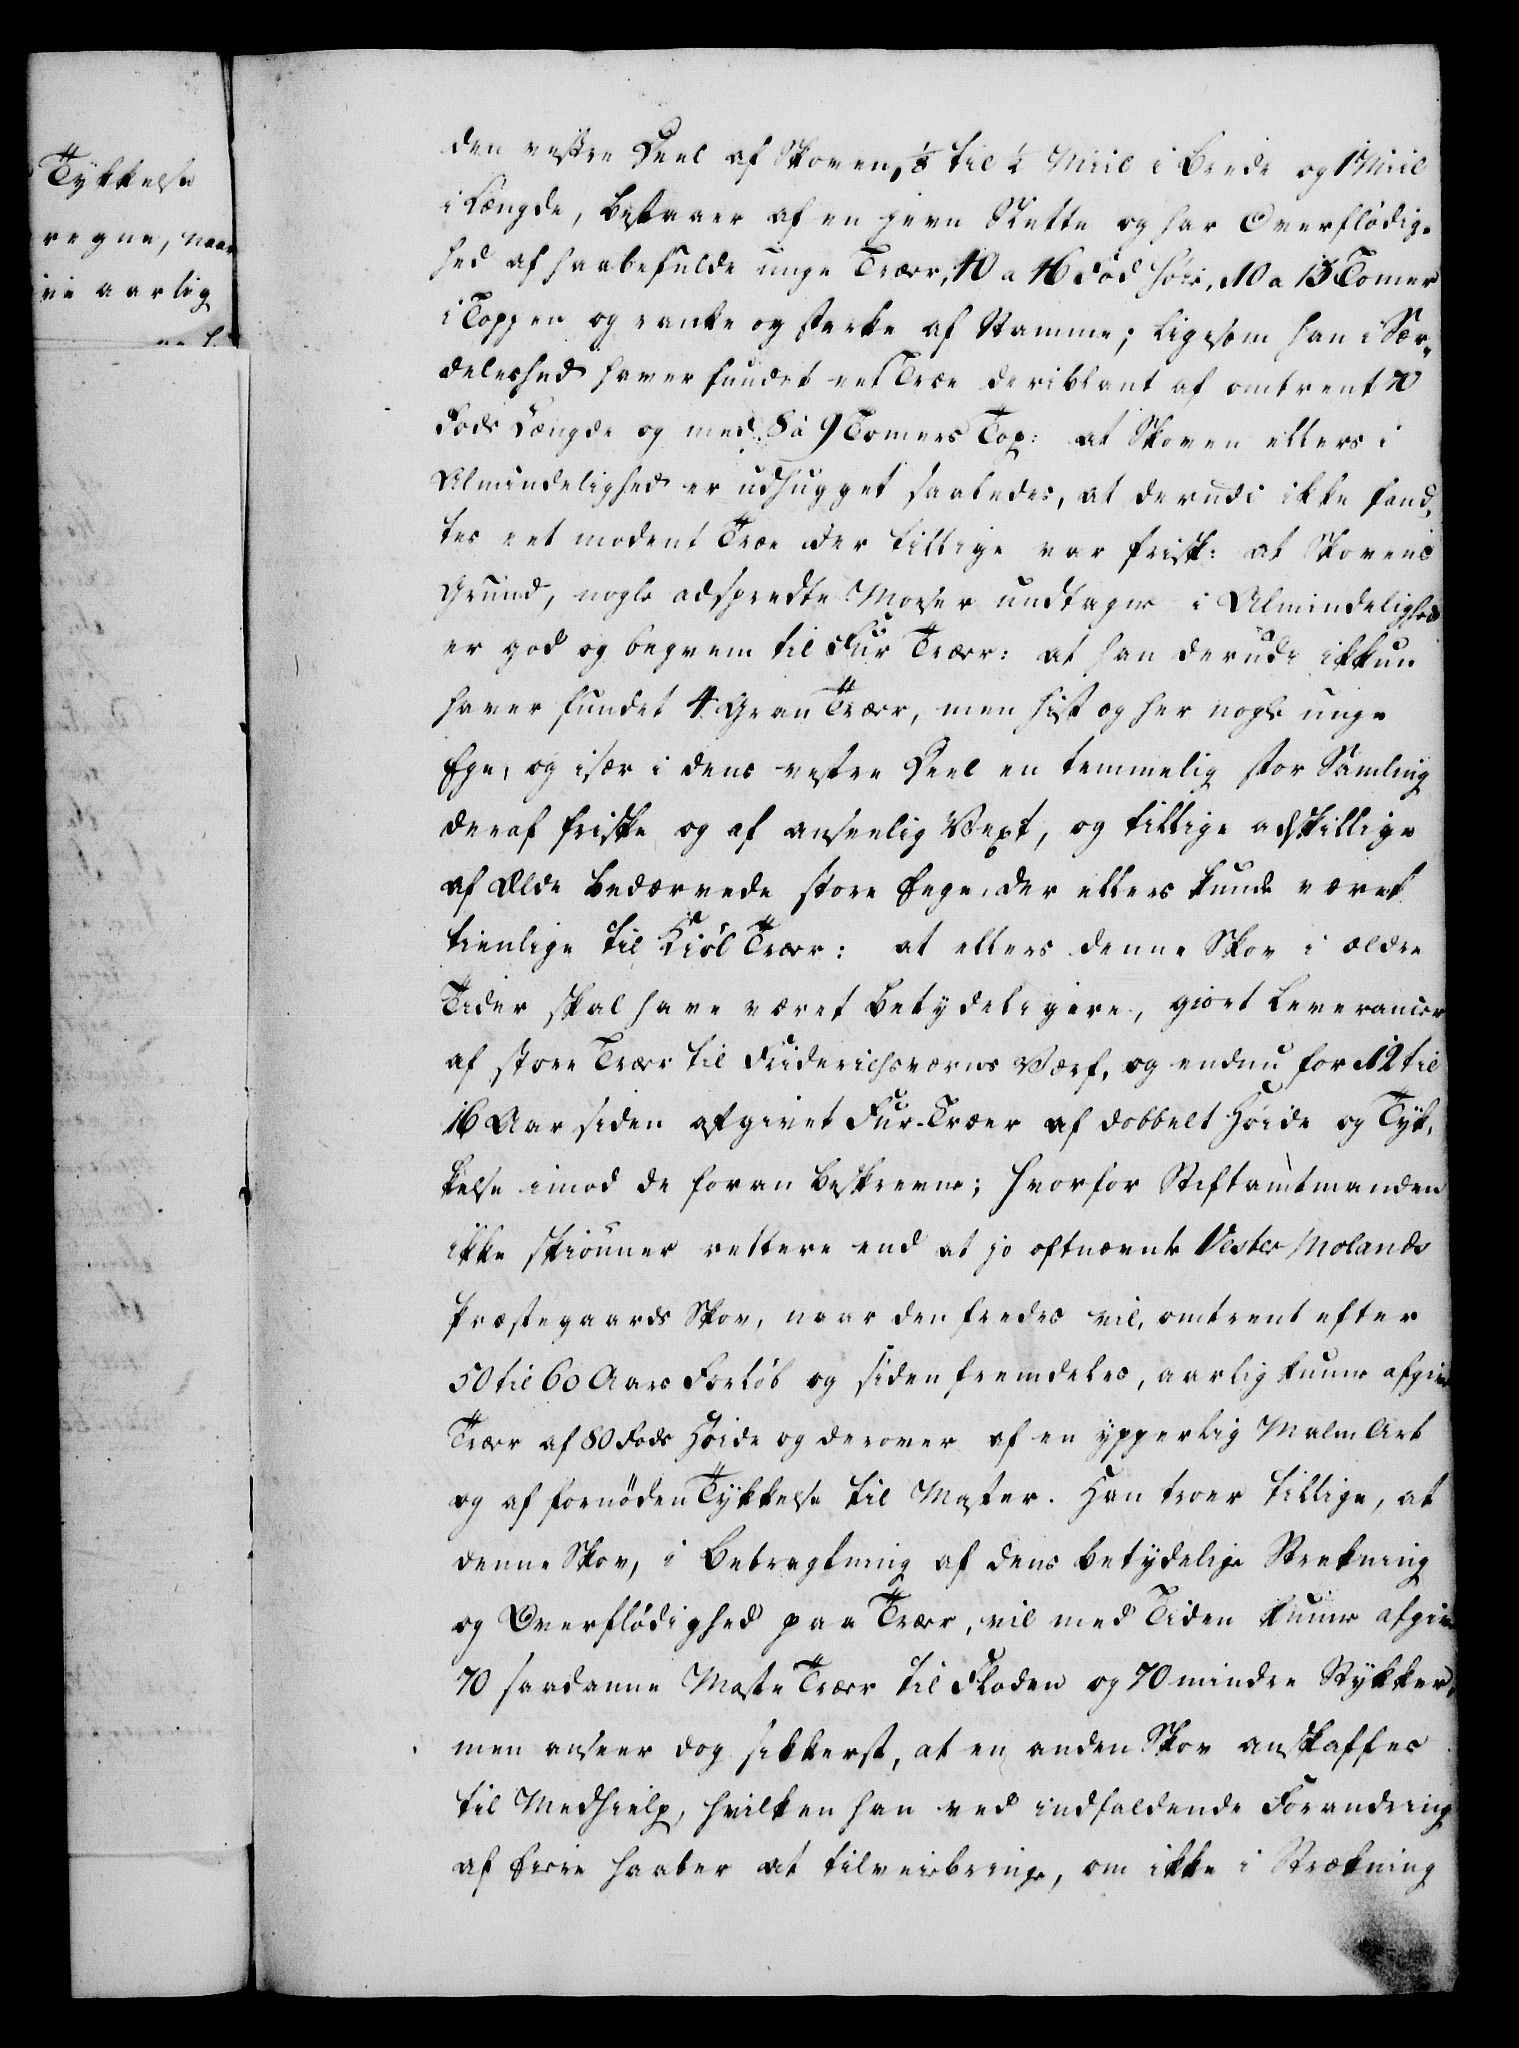 Tykkelse
regne, naar
ive aarlig
den vestre Deel af Skoven, ⅛ til ¼ Miil i Brede og 1 Miil
i Længde, bestaaer af en jevn Slette og har Overflødig-
hed af haabefulde unge Træer, 40 a 46 Fod høie, 10 a 13 Tomer
i Toppen og ranke og sterke af Stamme; ligesom han i Sær-
deleshed haver fundet eet Træe deriblant af omtrent 70
Fods Længde og med 8 à 9 Tomers Top: at Skoven ellers i
Almindelighed er udhugget saaledes, at derudi ikke fand-
tes eet modent Træe der tillige var frisk: at Skovens
Grund, nogle adspredte Moser undtagne i Almindelighed
er god og beqvem til Fur Træer: at han derudi ikkun
haver fundet 4 Gran Træer, men hist og her nogle unge
Ege, og især i dens vestre Deel en temmelig stor Samling
deraf friske og af anseelig Vext, og tillige adskillige
af Ælde bedærvede store Eege, der ellers kunde været
tienlige til Kiøl Træer: at ellers denne Skov i ældre
Tider skal have været betydeligere, giort Leverancer
af store Træer til Friderichsværns Værf, og endnu for 12 til
16 Aar siden afgivet Fur-Træer af dobbelt Høide og Tyk-
kelse imod de foran beskrevne; hvorfor Stiftamtmanden
ikke skiønner rettere end at jo oftnævnte Vester Molands
Præstegaards Skov, naar den fredes vil, omtrent efter
50 til 60 Aars Forløb og siden fremdeles, aarlig kunne afgive
Træer af 80 Fods Høide og derover af en ypperlig Malm Art
og af fornöden Tykkelse til Master. Han troer tillige, at
denne Skov, i Betragtning af dens betydelige Strekning
og Overflødighed paa Træer, vil med Tiden kunne afgive
70 saadanne Maste Træer til Floden og 70 mindre Stykker,
men anseer dog sikkerst, at en anden Skov anskaffes
til Medhielp, hvilken han ved indfaldende Forandring
af Eeiere haaber at tilveiebringe, om ikke i Strækning